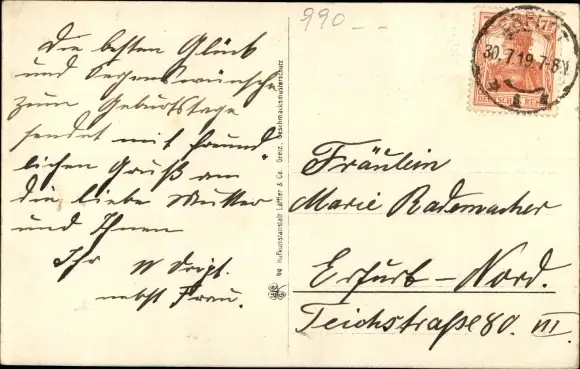 990.—
Die besten Glück
und Segenswünsche
zum Geburtstage
sendet mit freund
lichen Gruß an
die liebe Mutter
und Ihnen
Ihr W
nebst Frau.
Hofkunstanstalt Löffler & Co. Greiz. Geschmacksmusterschutz
30.7.19.7-8V
DEUTSCHES REICH
Fräulein
Marie Rademacher
Erfurt-Nord.
Teichstraße 80. III.